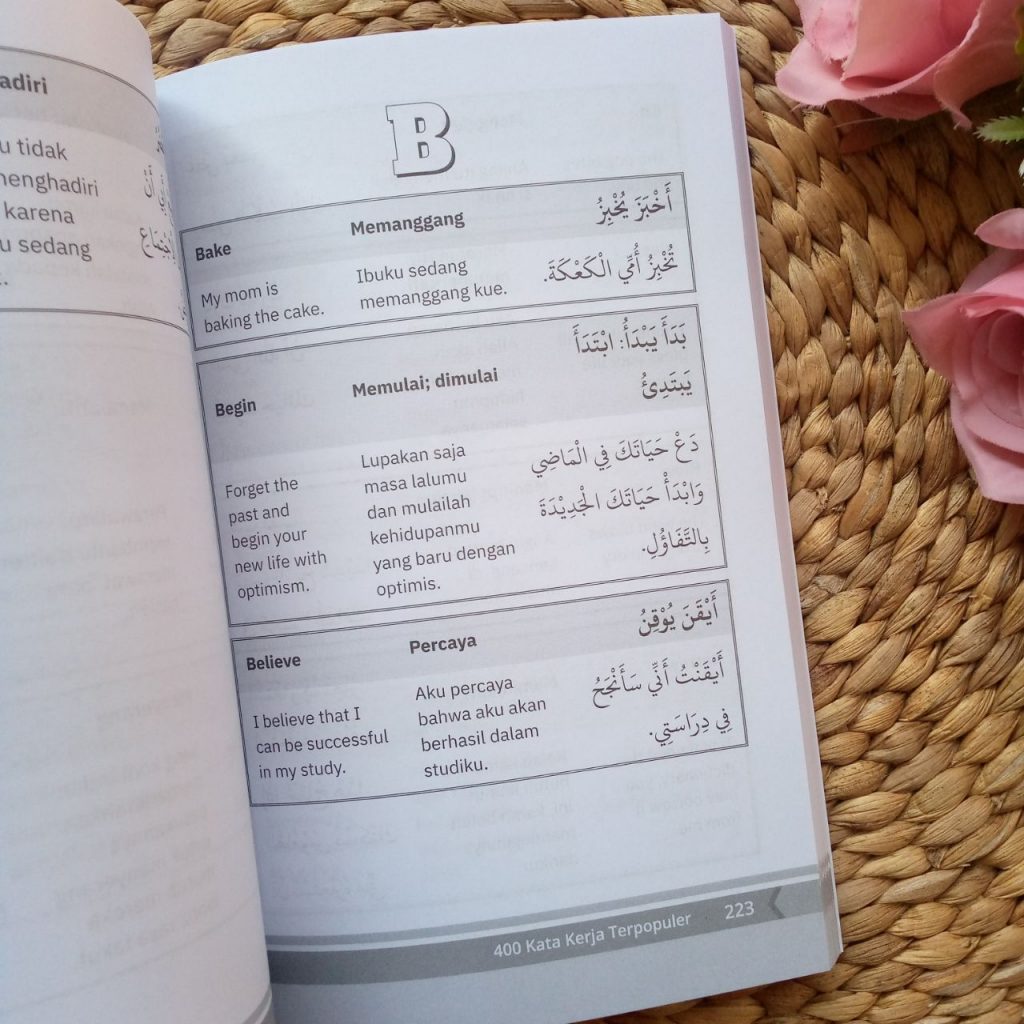 adiri
u tidak
menghadiri
karena
u sedang
B
Bake
Memanggang
أَخْبَزَ يُخْبِزُ
My mom is
baking the cake.
Ibuku sedang
memanggang kue.
تُخْبِزُ أُمِّي الْكَعْكَةَ.
Begin
Memulai; dimulai
بَدَأَ يَبْدَأُ: ابْتَدَأَ
يَبتَدِئُ
Forget the
past and
begin your
new life with
optimism.
Lupakan saja
masa lalumu
dan mulailah
kehidupanmu
yang baru dengan
optimis.
دَعْ حَيَاتَكَ فِي الْمَاضِي
وَابْدَأْ حَيَاتَكَ الْجَدِيْدَةَ
بِالتَّفَاؤُلِ.
Believe
Percaya
أَيْقَنَ يُوْقِنُ
I believe that I
can be successful
in my study.
Aku percaya
bahwa aku akan
berhasil dalam
studiku.
أَيْقَنْتُ أَنِّي سَأَنْجَحُ
فِي دِرَاسَتِي.
400 Kata Kerja Terpopuler 223